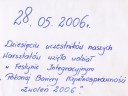 28.05.2006.
Dziesięciu uczestników naszych
Warsztatów wzięło udział
w Festynie Integracyjnym
"Pokonaj Bariery Niepełnosprawności
Znicz 2006"